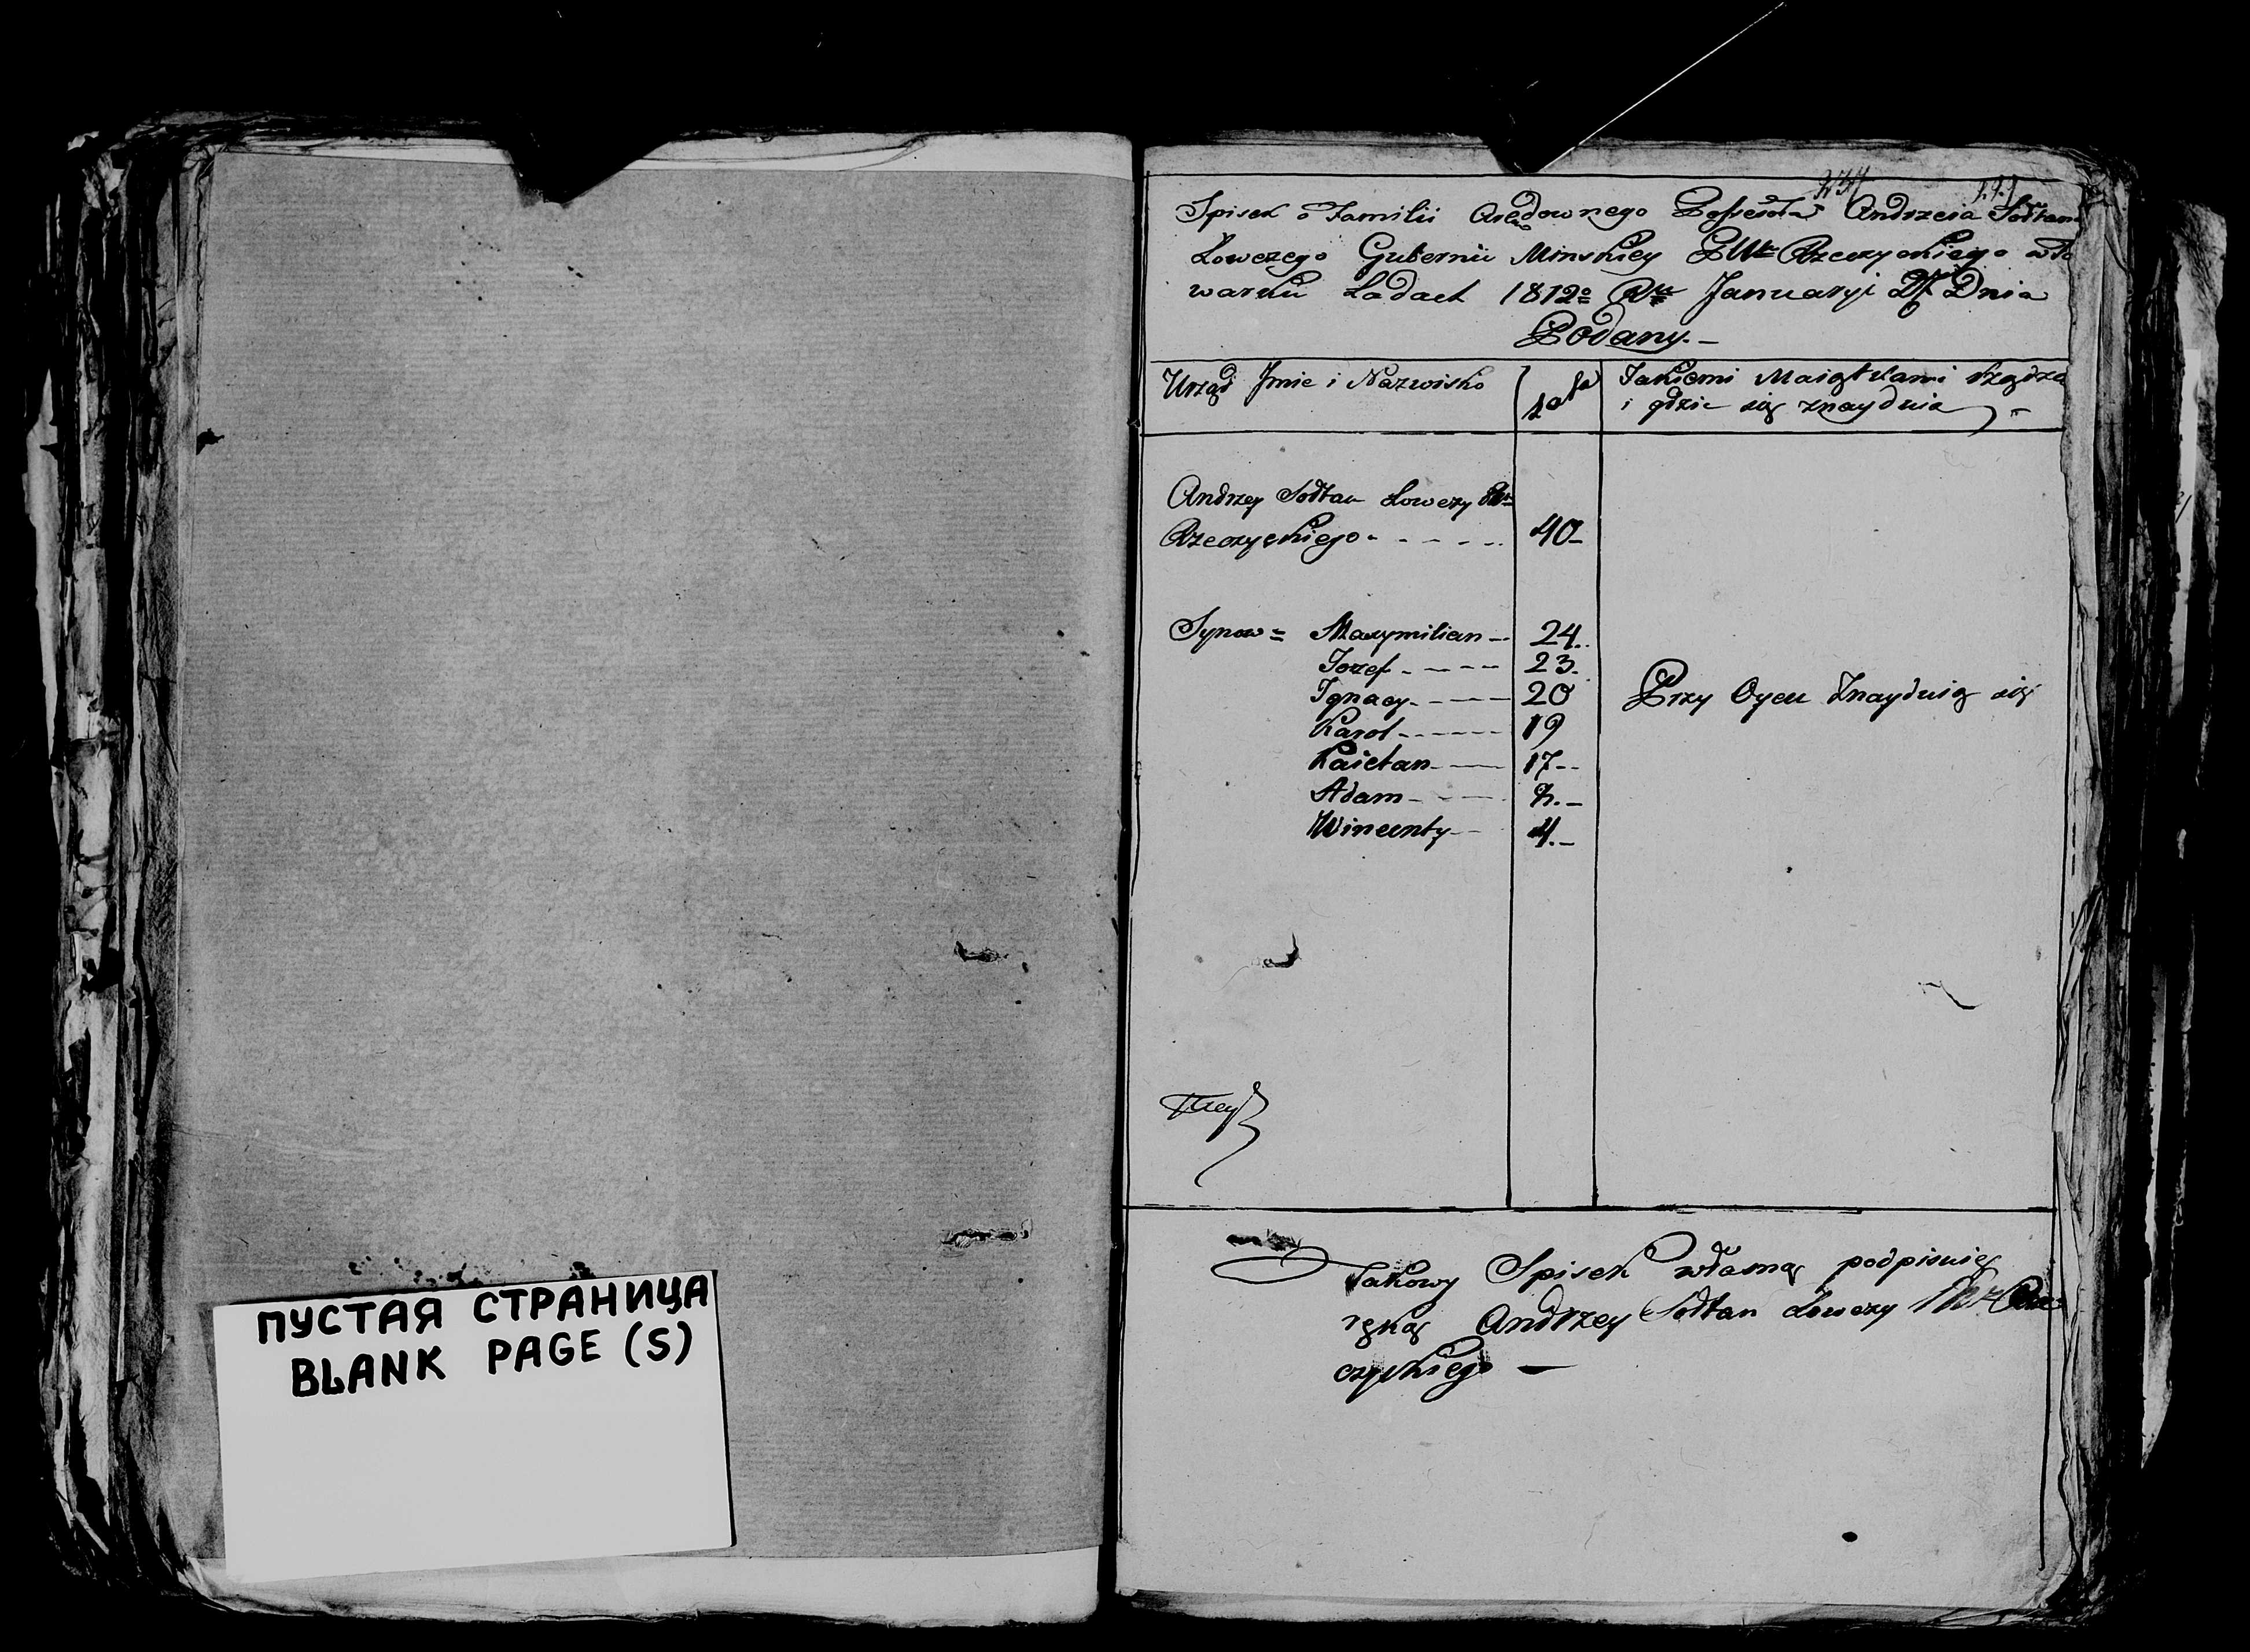 ПУСТАЯ СТРАНИЦА
BLANK PAGE (S)
237
Spisek o Familii Arędownego Possesora Andrzeia Sołtan
Łowczego Gubernii Minskiey PWtu Rzeczyckiego w fo
warku Ładach 1812o Rku January 27 Dnia
Podany. –
Urząd Jmie i Nazwisko
Lata
Jakiemi Maiątkami rządzą
i gdzie się znayduią
Andrzey Sołtan Łowczy Pttu
Rzeczyckiego - - - - - -
40 –
Synow = Maxymilian – 24..
Iozef - - - - - 23.
Ignacy - - - - 20
Przy Oycu Znayduią się
Karol - - - - - - 19
Kaietan - — 17 - -
Adam - - — 7. –
Wincenty - - 4. –
Takowy Spisek własną podpisuię
ręką Andrzey Sołtan Łowczy Rze
czyckiego —